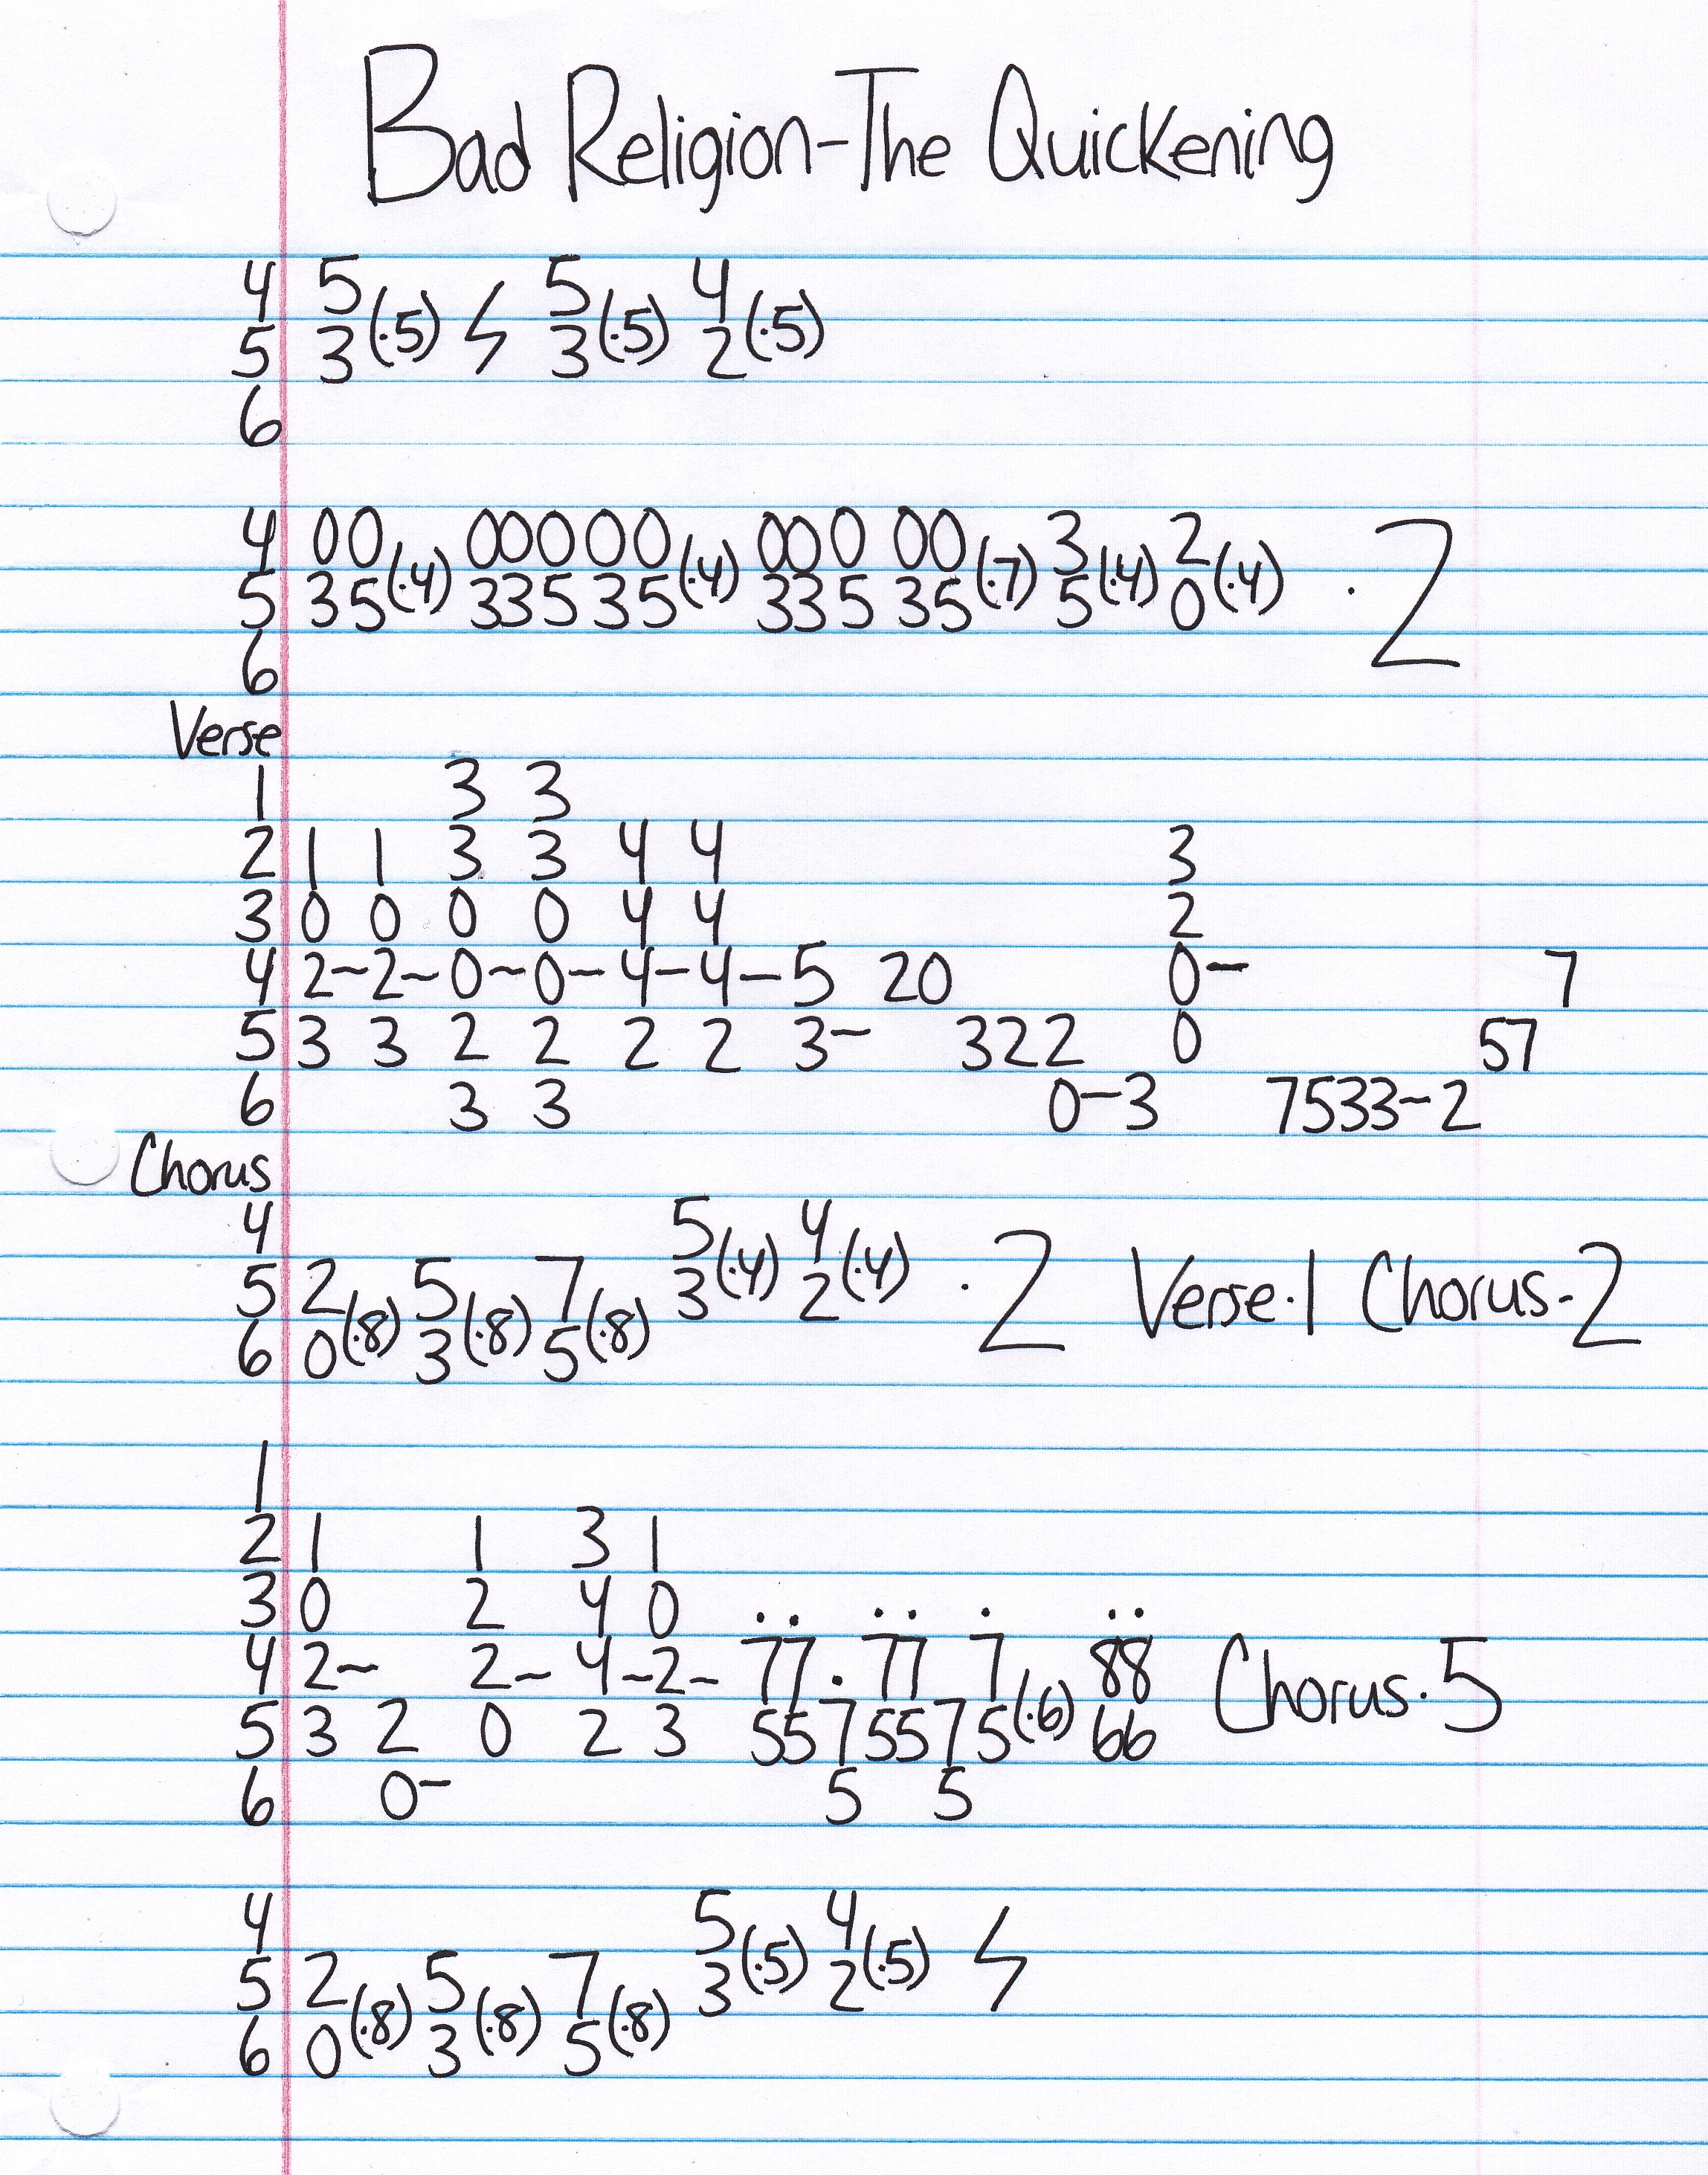 Bad Religion-The Quickening
4 5 5 4
5 3(.5) ϟ 3(.5) 2(.5)
6
4 00 00000 000 00 3 2
5 35(.4) 33535(.4) 335 35(.7) 5(.4) 0(.4) . 2
6
Verse
1 3 3
2 1 1 3 3 4 4 3
3 0 0 0 0 4 4 2
4 2~2~0~0-4-4-5 20 0- 7
5 3 3 2 2 2 2 3- 322 0 57
6 3 3 0-3 7533-2
Chorus
4 5(.4) 4(.4)
5 2 5 7 3 2 . 2 Verse.1 Chorus-2
6 0(.8) 3(.8) 5(.8)
1
2 1 1 3 1
3 0 2 4 0 .. .. . ..
4 2~ 2~4~2~ 77.77 7 88 Chorus.5
5 3 2 0 2 3 5575575(.6) 66
6 0- 5 5
4 5 4
5 2 5 7 3(.5) 2(.5) ϟ
6 0(.8) 3(.8) 5(.8)